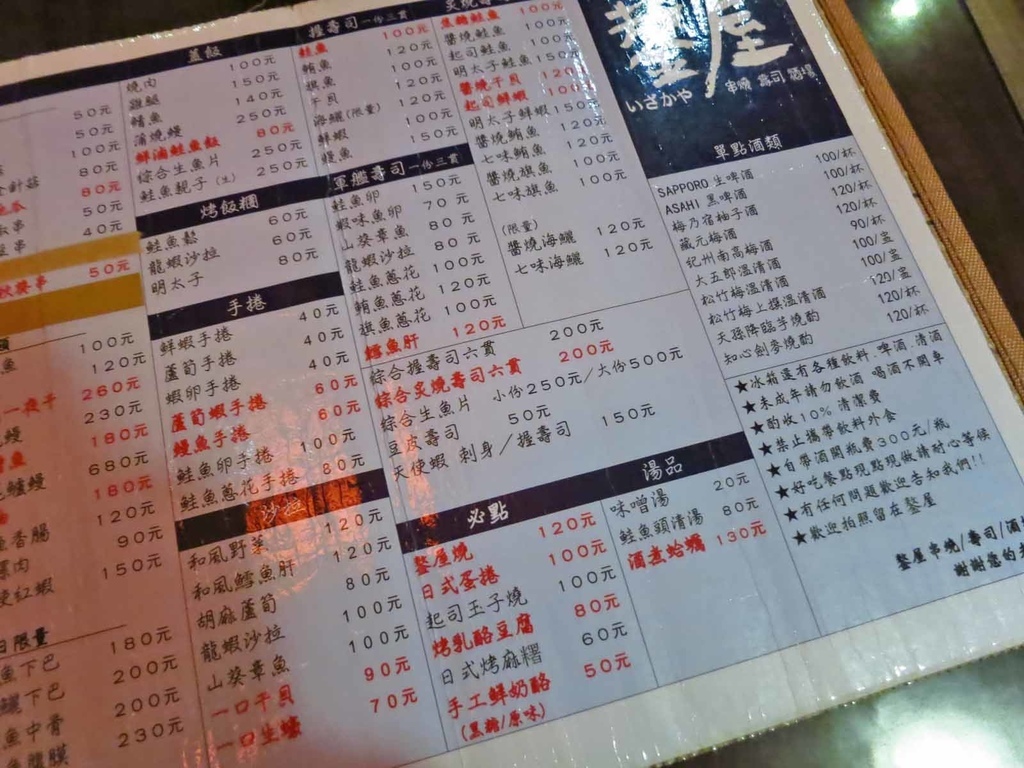 50元
50元
100元
針菇 80元
80元
50元
串 40元
秋葵串 50元
100元
魚 120元
一夜干 260元
鰻 230元
180元
680元
鰻 180元
120元
香腸 90元
肉 150元
紅蝦
日限量
魚下巴 180元
下巴 200元
魚中骨 200元
230元
蓋飯
燒肉 100元
雞腿 150元
鮪魚 140元
蒲燒鰻 250元
鮮滷鮭魚飯 80元
綜合生魚片 250元
鮭魚親子(生) 250元
烤飯糰
鮭魚鬆 60元
龍蝦沙拉 60元
明太子 80元
手捲
鮮蝦手捲 40元
蘆筍手捲 40元
蝦卵手捲 40元
蘆筍蝦手捲 60元
鰻魚手捲 60元
鮭魚卵手捲 100元
鮭魚蔥花手捲 80元
沙拉
和風野菜 120元
和風鱈魚肝 120元
胡麻蘆筍 80元
龍蝦沙拉 100元
山葵章魚 100元
一口干貝 90元
一口生蠔 70元
握壽司 一份三貫
鮭魚 100元
鮪魚 120元
旗魚 100元
干貝 120元
海鱺(限量) 120元
鮮蝦 100元
鰻魚 150元
軍艦壽司 一份三貫
鮭魚卵 150元
蝦味魚卵 70元
山葵章魚 80元
龍蝦沙拉 80元
鮭魚蔥花 100元
鮪魚蔥花 120元
旗魚蔥花 100元
鱈魚肝 120元
綜合握壽司六貫 200元
綜合炙燒壽司六貫 200元
綜合生魚片 小份250元/大份500元
豆皮壽司 50元
天使蝦 刺身/握壽司 150元
炙燒
鮭魚 100元
醬燒鮭魚 100元
起司鮭魚 100元
明太子鮭魚
醬燒干貝 120
起司鮮蝦 100元
明太子鮮蝦 150元
醬燒鮪魚 120元
七味鮪魚 120元
醬燒旗魚 100元
七味旗魚 100元
(限量)
醬燒海鱺 120元
七味海鱺 120元
必點
鏊屋燒 120元
日式蛋捲 100元
起司玉子燒 100元
烤乳酪豆腐 80元
日式烤麻糬 60元
手工鮮奶酪 50元
(黑糖/原味)
湯品
味噌湯 20元
鮭魚頭清湯 80元
酒煮蛤蠣 130元
屋
いざかや 串燒 壽司 酒場
單點酒類
SAPPORO 生啤酒 100/杯
ASAHI 黑啤酒 100/杯
梅乃宿柚子酒 120/杯
蔵元梅酒 120/杯
紀州南高梅酒 120/杯
大五郎溫清酒 90/杯
松竹梅溫清酒 100/盅
松竹梅上撰溫清酒 100/盅
天孫降臨芋燒酌 120/杯
知心劍麥燒酌 120/杯
★冰箱還有各種飲料.啤酒.清酒
★未成年請勿飲酒 喝酒不開車
★酌收10%清潔費
★禁止攜帶飲料外食
★自帶酒開瓶費300元/瓶
★好吃餐點現點現做請耐心等候
★有任何問題歡迎告知我們!!
★歡迎拍照留在鏊屋
鏊屋串燒/壽司/酒
謝謝您的